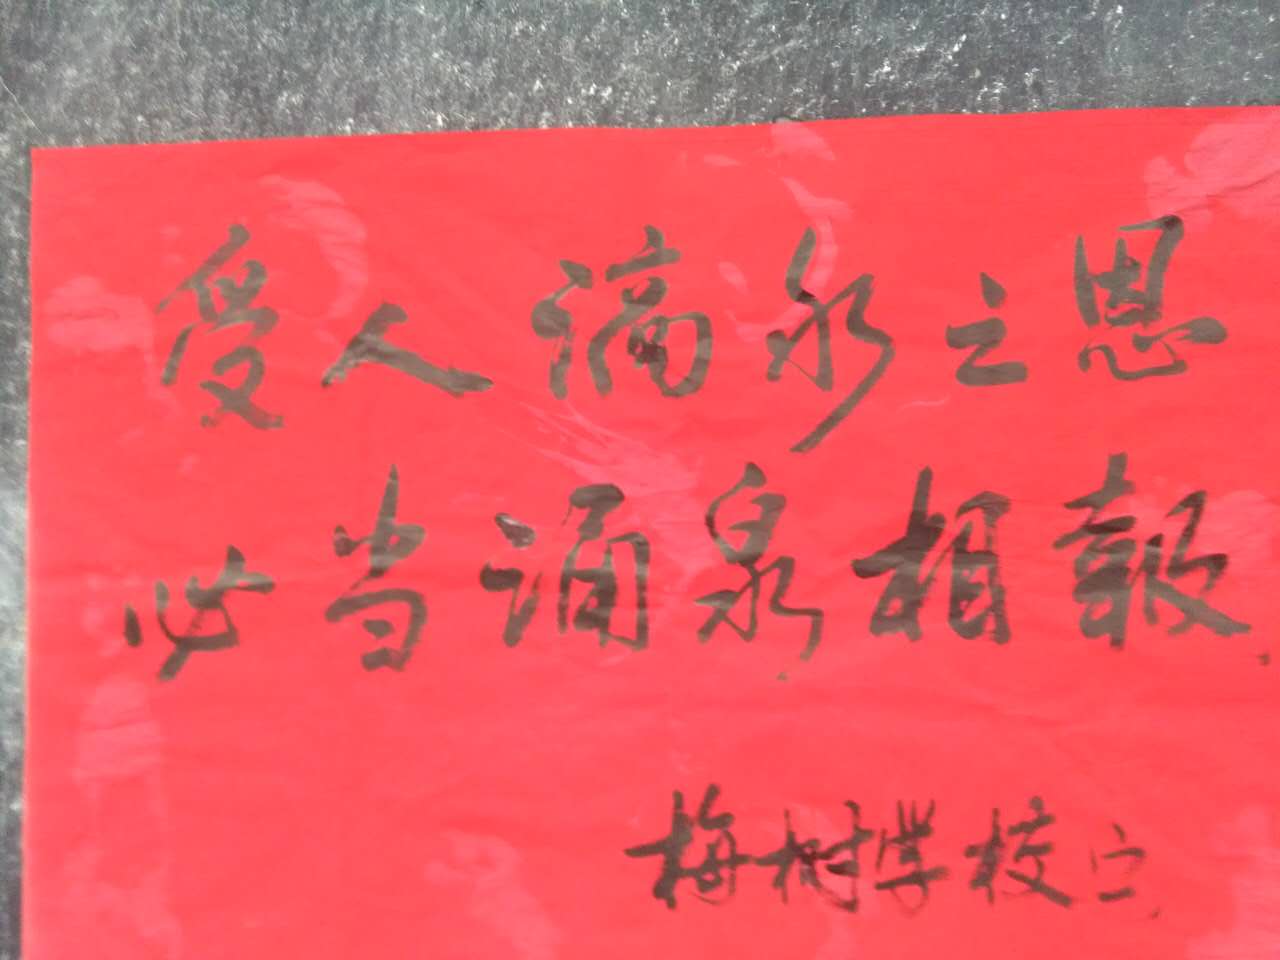 受人滴水之恩
必当涌泉相報.
梅树学校立